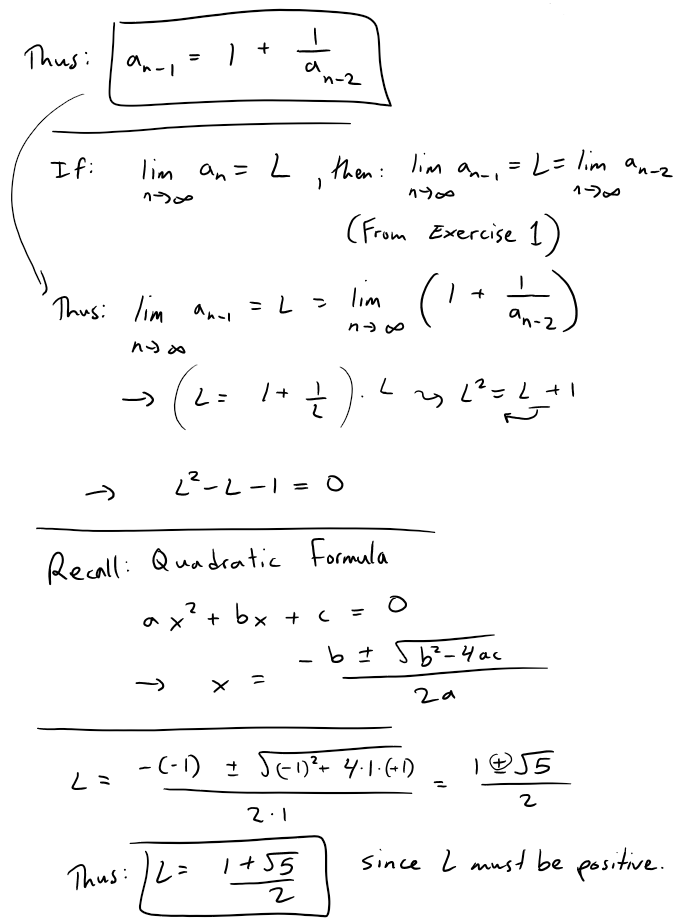 Thus: aₙ₋₁ = 1 + 1/aₙ₋₂
If: lim n→∞ aₙ = L, then: lim n→∞ aₙ₋₁ = L = lim n→∞ aₙ₋₂
(From Exercise 1)
Thus: lim n→∞ aₙ₋₁ = L = lim n→∞ (1 + 1/aₙ₋₂)
→ (L = 1 + 1/L) · L ⇝ L² = L + 1
→ L² - L - 1 = 0
Recall: Quadratic Formula
ax² + bx + c = 0
→ x = (-b ± √(b² - 4ac))/2a
L = (-(-1) ± √((-1)² + 4·1·(+1)))/2·1 = (1 ± √5)/2
Thus: L = (1 + √5)/2 since L must be positive.